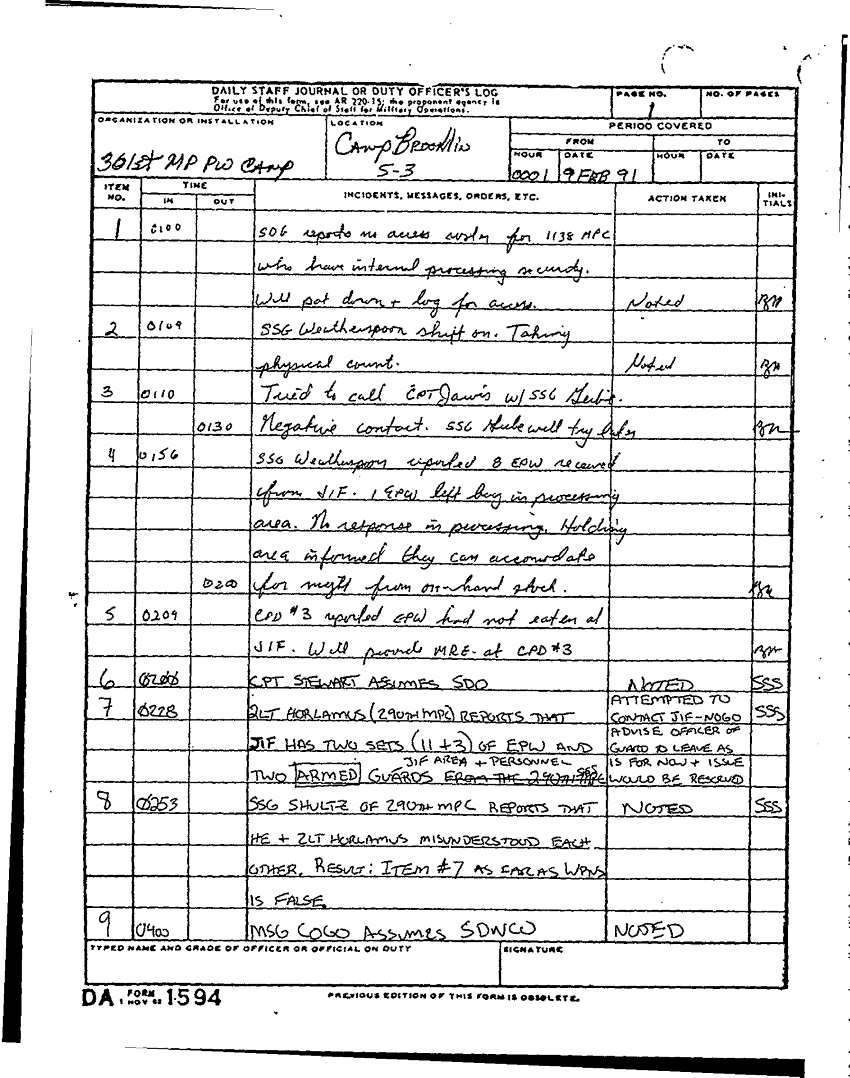 DAILY STAFF JOURNAL OR DUTY OFFICER'S LOG
For use of this form, see AR 220-15; the proponent agency is
Office of Deputy Chief of Staff for Military Operations.
PAGE NO.
1
NO. OF PAGES
ORGANIZATION OR INSTALLATION
361st MP PW CAMP
LOCATION
CAMP BROOKLIN
S-3
PERIOD COVERED
FROM
TO
HOUR
DATE
HOUR
DATE
0001
9 FEB 91
ITEM NO.
TIME
IN
OUT
INCIDENTS, MESSAGES, ORDERS, ETC.
ACTION TAKEN
INI-TIALS
1 0100 SOG reports no access for 1138 MPC
who have internal processing security.
Will pat down + log for access. Noted
2 0109 SSG Weatherspoon shift on. Taking
physical count. Noted
3 0110 Tried to call CPT Jarvis w/ SSG
0130 Negative contact. SSG will try later
4 0156 SSG Weatherspoon reported 8 EPW received
from JIF. 1 EPW left bag in processing
area. No response in processing. Holding
area informed they can accomodate
0200 for night from on-hand stock.
5 0209 CPD #3 reported EPW had not eaten at
JIF. Will provide MRE at CPD #3
6 0200 CPT STEWART ASSUMES SDO NOTED SSS
7 0228 2LT HORLAMUS (290TH MPC) REPORTS THAT
JIF HAS TWO SETS (11+3) OF EPW AND
JIF AREA + PERSONNEL
TWO ARMED GUARDS FROM THE 290TH MPC
ATTEMPTED TO
CONTACT JIF-NOGO SSS
ADVISE OFFICER OF
GUARD TO LEAVE AS
IS FOR NOW + ISSUE
WOULD BE RESOLVED
8 0253 SSG SHULTZ OF 290TH MPC REPORTS THAT NOTED SSS
HE + 2LT HORLAMUS MISUNDERSTOOD EACH
OTHER. RESULT: ITEM #7 AS FAR AS WPNS
IS FALSE.
9 0400 MSG COGO ASSUMES NOTED
TYPED NAME AND GRADE OF OFFICER OR OFFICIAL ON DUTY
SIGNATURE
DA FORM 1 NOV 62 1594
PREVIOUS EDITION OF THIS FORM IS OBSOLETE.